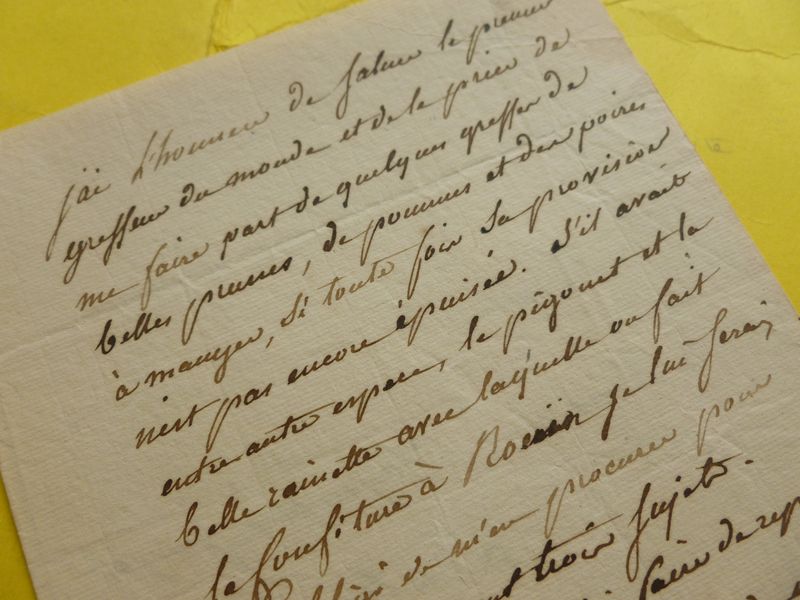 j'ai l'honneur de saluer le premier
greffeur du monde et de le prier de
me faire part de quelques greffes de
belles prunes, de pommes et des poires
à manger, si toute fois sa provision
n'est pas encore épuisée. S'il avait
entre autre espece, le pigonet et la
belle rainette avec laquelle on fait
la confiture à Rouen je lui serais
obligé de m'en procurer pour
trois sujets.
faire de rep